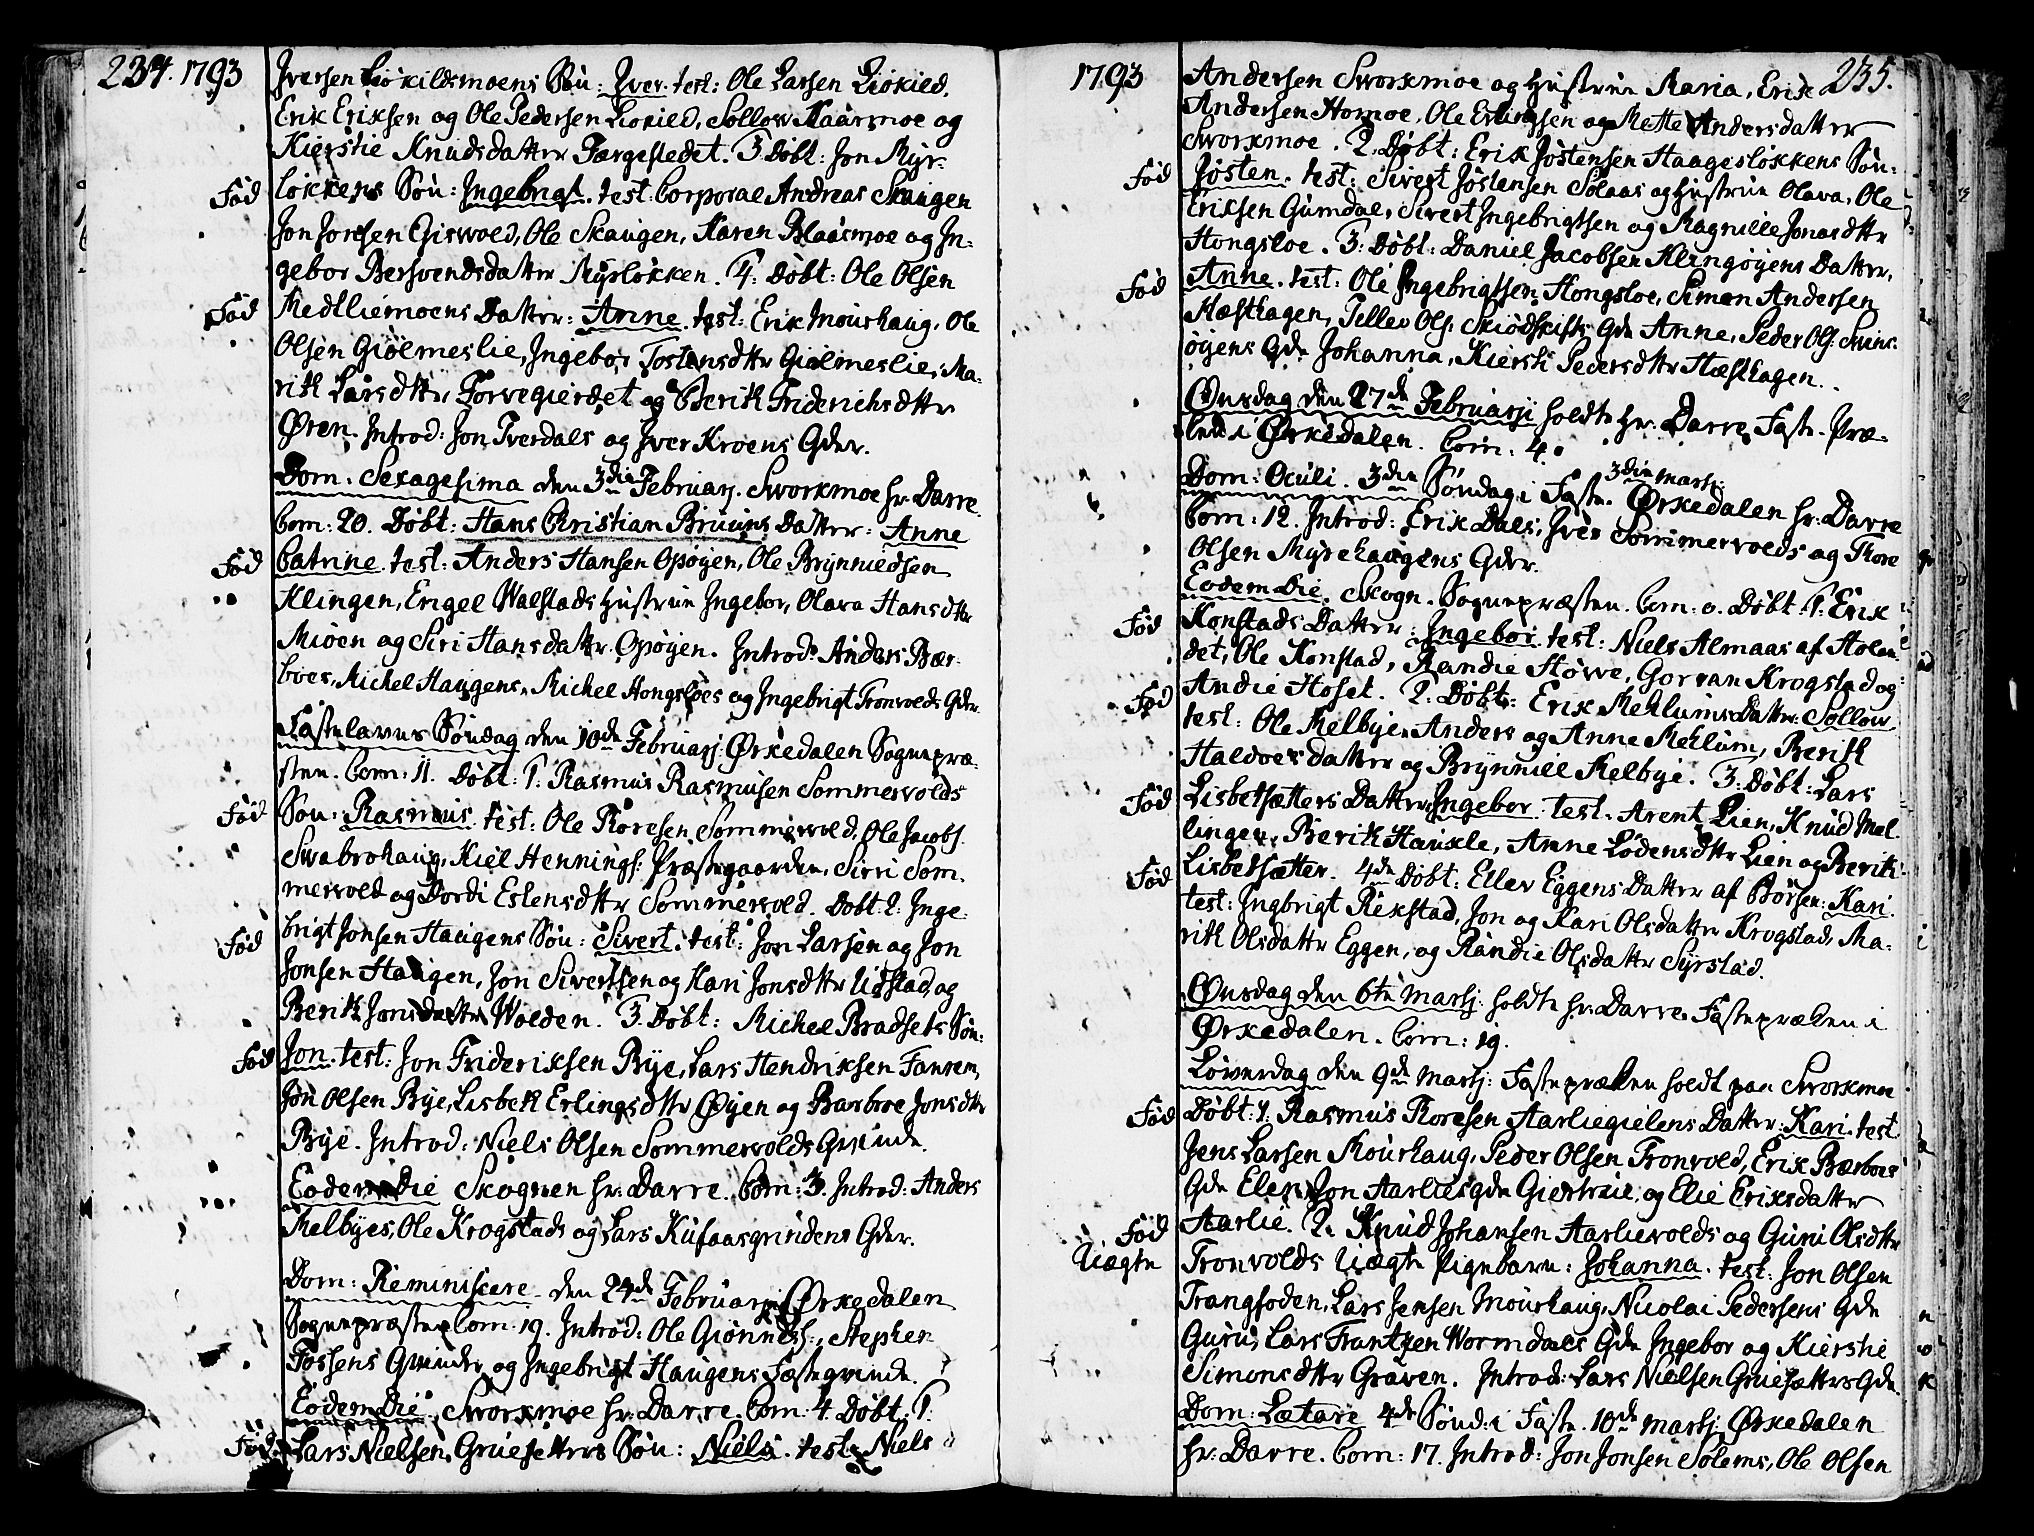 234. 1793
Iversen Liøkildsmoens Søn: Iver. test: Ole Larsen Liøkied,
Erik Eriksen og Ole Pedersen Liokied, Sollow Kaarmoe og
Kierstie Knudsdatter Færgestedet. 3. Døbt: Jon Myr-
Fød løkkens Søn: Ingebrigt. test: Corporal Andreas Skaugen
Jon Joresen Giswold, Ole Skaugen, Karen Blaasmoe og In-
gebor Bersvendsdatter Myrløkken. 4: Døbt: Ole Olsen
Fød Medlliemoens Datter: Anne. test: Erik Mourhaug, Ole
Olsen Giølmeslie, Ingebor Tostensdttr Giølmeslie, Ma-
rith Larsdttr Forvegierdet og Berith Friderichsdttr
Øren. Introd: Jon Tverdals og Iver Kroens Qder.
Dom: Sexagesima den 3die Februarj. Sworkmoe hr. Darre
Com: 20. Døbt: Hans Christian Bruuns Datter: Anne
Fød Catrine. test: Anders Hansen Opøyen, Ole Brynnildsen
Klingen, Engel Walstads Hustrue Ingebor, Olava Hansdttr
Mioen og Siri Hansdattr Opøyen. Introd: Anders Bær-
boes, Michel Haugens, Michel Hongsloes og Ingebrigt Tronvolds Qder.
Fastelavns Søndag den 10de Februarj. Ørkedalen Sognepræ-
sten. Com: 11. Døbt: 1. Rasmus Rasmusen Sommervolds
Fød Søn: Rasmus. test: Ole Roresen Sommervold, Ole Jacobs:
Swabrohaug, Kiel Hennings: Præstegaarden, Sirri Som-
mervold og Dordi Estensdttr Sommervold. Døbt 2: Inge-
Fød brigt Jonsen Haugens Søn: Sivert. test: Jon Larsen og Jon
Jonsen Haugen, Jon Sivertsen og Kari Jonsdttr Udstad og
Berith Jonsdatter Wolden. 3. Døbt: Michel Bradsets Søn:
Fød Jon. test: Jon Frideriksen Bye, Lars Hendriksen Fanrem,
Jon Olsen Bye, Lisbeth Erlingsdttr Øyen og Barbroe Jonsdttr
Bye. Introd: Niels Olsen Sommervolds Qvinde.
Eodem Die Skognen hr. Darre. Com: 3. Introd: Anders
Melbyes, Ole Krogstads og Lars Kufaasgrindens Qder.
Dom: Reminiscere. den 24de Februarj Ørkedalen
Sognepræsten Com: 19. Introd: Ole Giønnes:, Stephen
Fossens Qvinder og Ingebrigt Haugens Fæsteqvinde.
Eodem Die. Sworkmoe hr. Darre. Com: 4. Døbt. 1:
Fød Lars Nielsen Gruesettrs Søn: Niels. test: Niels
1793 235.
Andersen Sworkmoe og Hustrue Maria, Erik
Andersen Homoe, Ole Erlingsen og Mette Andersdatter
Sworkmoe. 2. Døbt: Erik Jøstensen Haagesløkkens Søn:
Fød Jøsten. test: Sivert Jøstensen Solaas og Hustrue Olava, Ole
Eriksen Gumdal, Sivert Ingebrigtsen og Ragnille Jonasdttr
Hongsloe. 3: Døbt: Daniel Jacobsen Klingøyens Datter,
Fød Anne. test: Ole Ingebrigtsen Hongsloe, Simon Andersen
Hæsthagen, Tellev Ols: Skiødskifts Qde Anne, Peder Ols: Svins-
øyens Qde Johanna, Kiersti Pedersdttr Hæsthagen.
Onsdag den 27de Februarij holdte hr. Darre Faste-Præ-
ken i Ørkedalen. Com: 4.
Dom: Oculi. 3die Søndag i Faste. 3die Martj: Ørkedalen hr. Darre
Com: 12. Introd: Erik Dals, Iver Sommervolds og Thore
Olsen Myrehaugens Qder.
Eodem Die. Skogn. Sognepræsten. Com: 0. Døbt. 1: Erik
Fød Konstads Datter: Ingebor. test: Niels Almaas af Holen-
det, Ole Konstad, Randie Støwe, Gorvan Krogstad og
Fød Andie Hoset. 2. Døbt: Erik Mehlums Datter: Sollow
test: Ole Melbye, Anders og Anne Mehlum, Berith
Haldorsdatter og Brynnill Melbye. 3: Døbt: Lars
Fød Lisbetsætters Datter Ingebor. test. Arent Lien, Knud Mel-
lingen, Berith Haukle, Anne Lodensdttr Lien og Berith
Fød Lisbetsætter. 4de Døbt: Ellev Eggens Datter af Børsen: Kari
test: Ingbrigt Rekstad, Jon og Kari Olsdatter Krogstad, Ma-
rith Olsdattr Eggen, og Randie Olsdattr Syrstad.
Onsdag den 6te Martj. holdte hr. Darre Fasteprækn i
Ørkedalen. Com: 19.
Løverdag den 9de Martj: Fastepræken holdt paa Sworkmoe
Fød Døbt: 1. Rasmus Roresen Aarliegielens Datter: Kari. test
Jens Larsen Mourhaug, Peder Olsen Tronvold, Erik Bærboes
Qde Elen, Jon Aarlies Qde Giertrue og Elie Eriksdatter
Fød Aarlie. 2. Knud Johansen Aarlievolds og Guni Olsdttr
Uægte Tronvolds Uægte Pigebarn: Johanna. test: Jon Olsen
Trangfoden, Lars Jensen Mourhaug, Nicolai Pedersens Qde
Guru, Lars Frantzen Wormdals Qde Ingebor og Kierstie
Simonsdttr Graven. Introd: Lars Nielsen Gruesættrs Qde.
Dom: Lætare 4de Sønd: i Faste. 10de Martj: Ørkedalen
hr: Darre. Com: 17. Introd: Jon Jonsen Solems, Ole Olsen